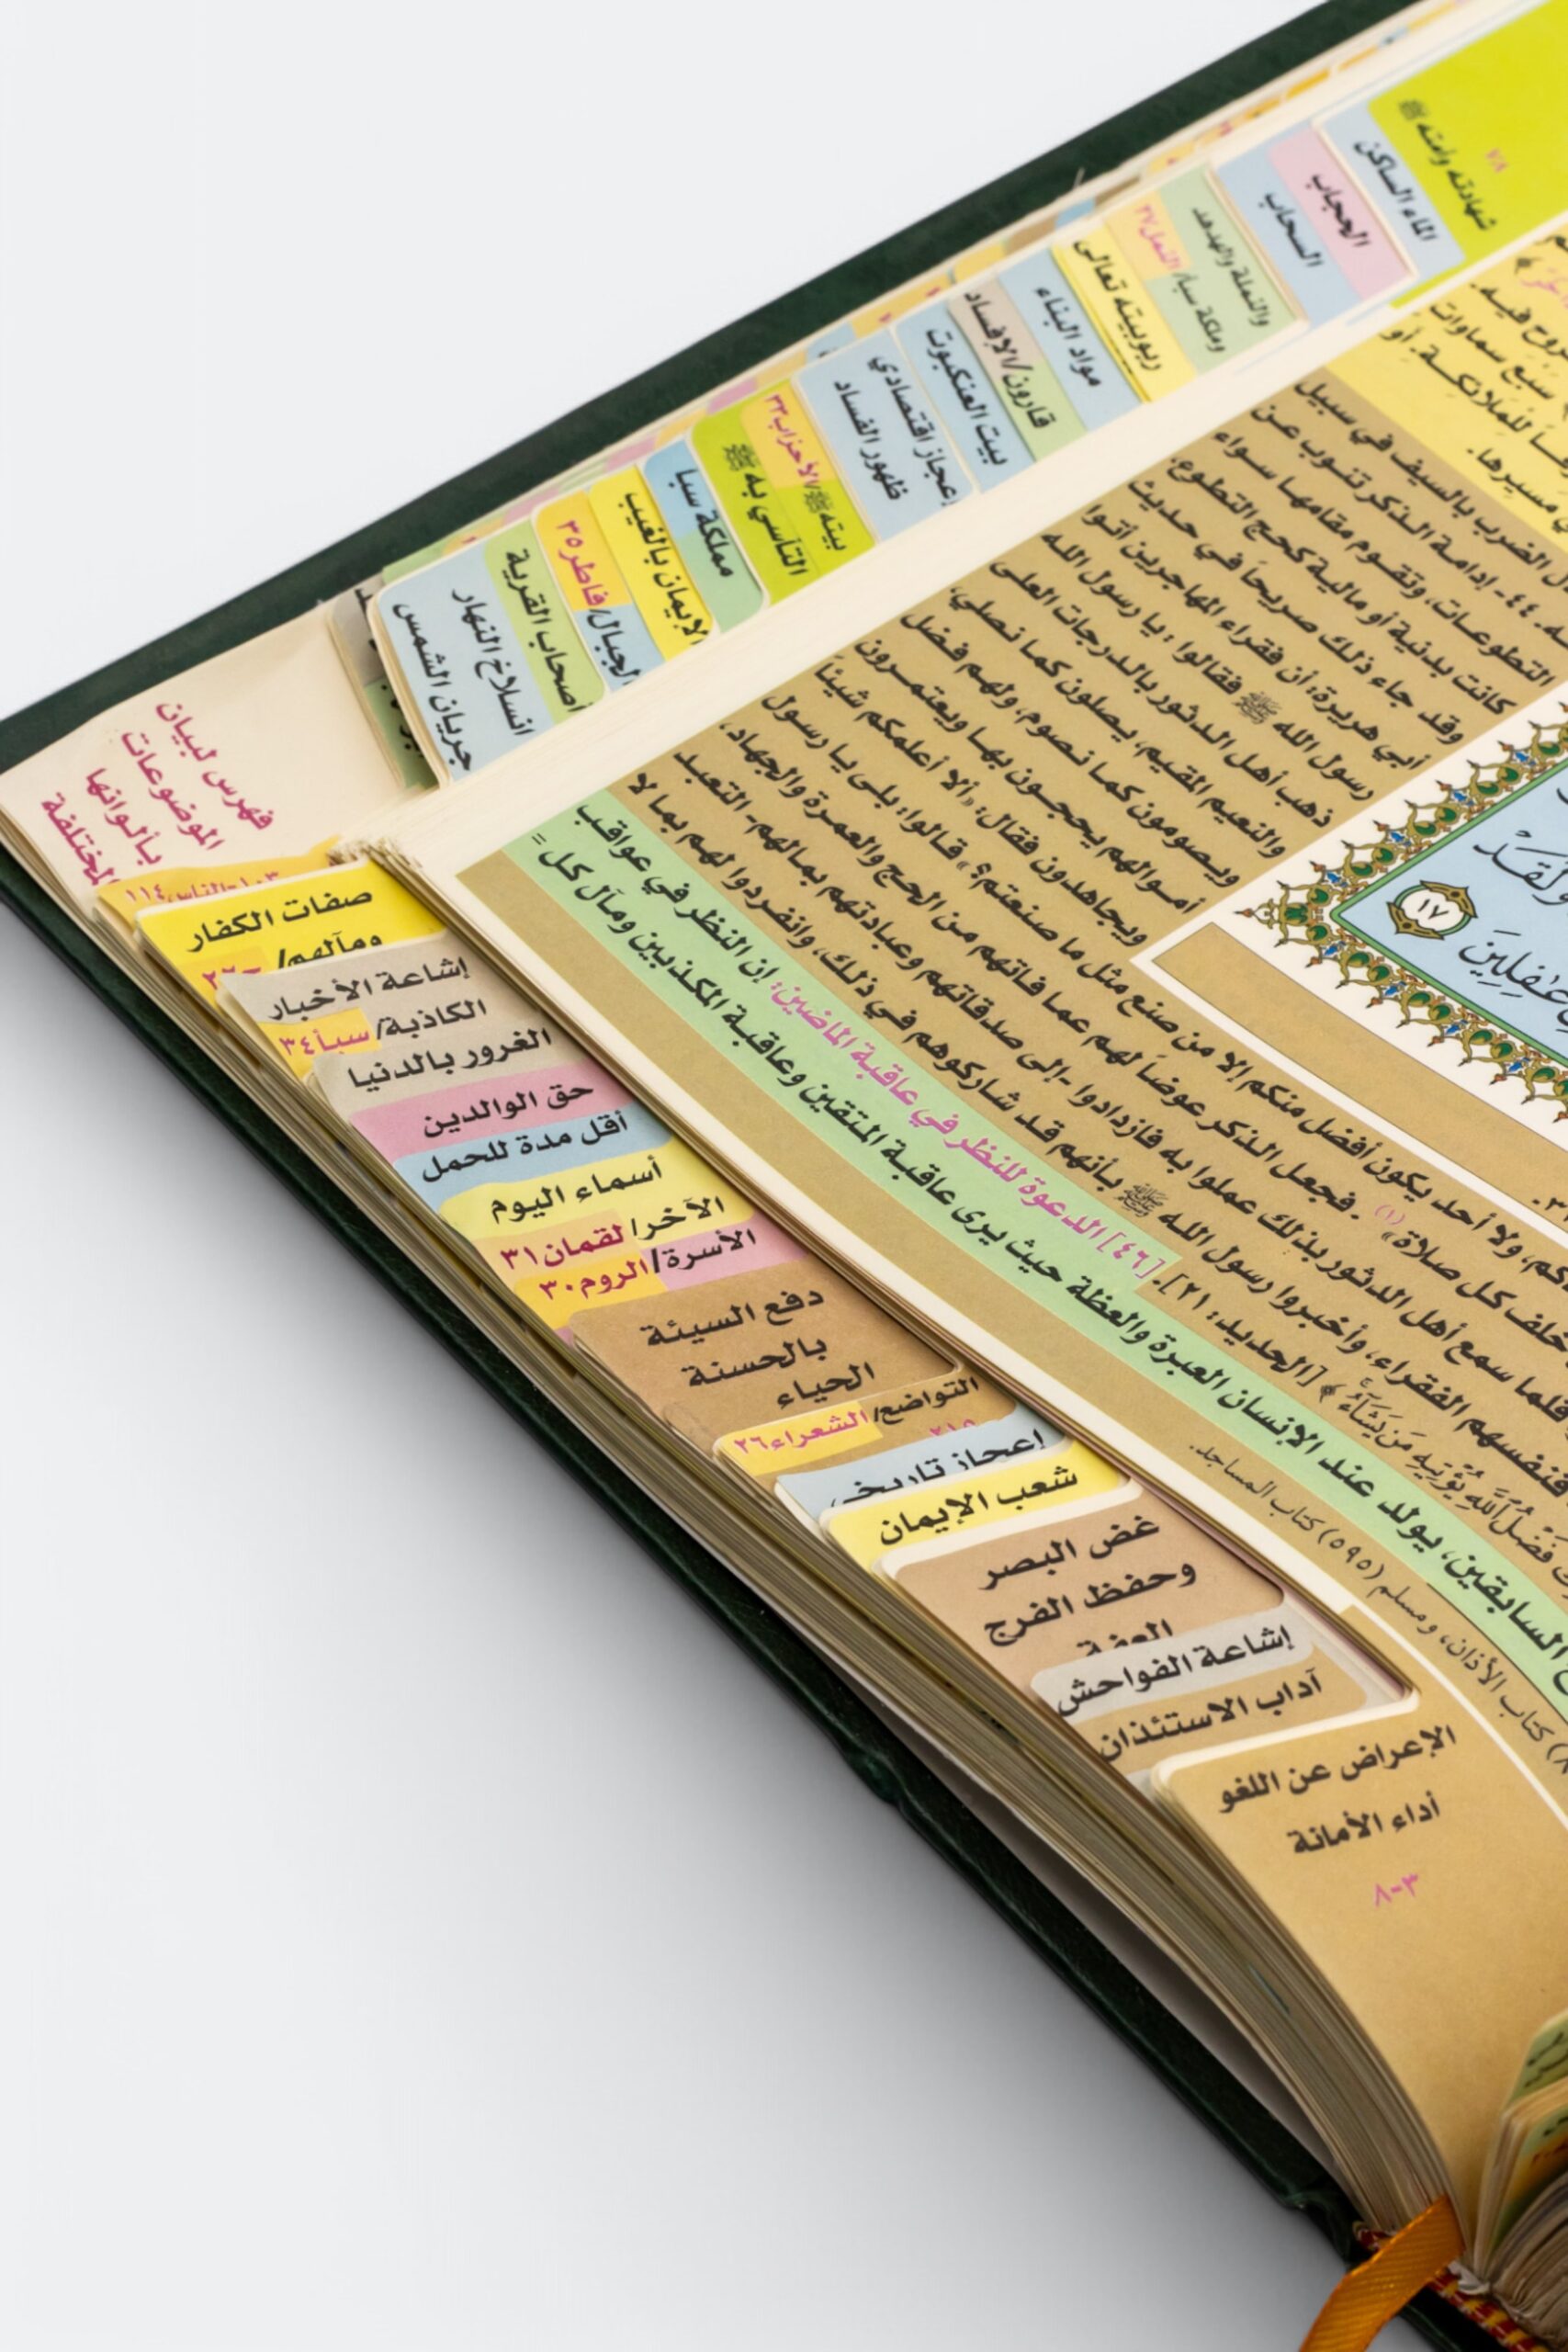 شهادته وأمته ﷺ
٧٨
الماء الساكن
الحجاب
السحاب
والنملة والهدهد
وملكة سبأ/النمل٢٧
ربوبيته تعالى
مواد البناء
قارون/الإفساد
بيت العنكبوت
إعجاز اقتصادي
ظهور الفساد
بيته ﷺ/الأحزاب٣٣
التأسي به ﷺ
مملكة سبأ
الإيمان بالغيب
الجبال/فاطر٣٥
أصحاب القرية
انسلاخ النهار
جريان الشمس
فهرس لبيان
الموضوعات
بألوانها
المختلفة
الناس١١٤
صفات الكفار
ومآلهم/
إشاعة الأخبار
الكاذبة/سبأ٣٤
الغرور بالدنيا
حق الوالدين
أقل مدة للحمل
أسماء اليوم
الآخر/لقمان٣١
الأسرة/الروم٣٠
دفع السيئة
بالحسنة
الحياء
التواضع/الشعراء٢٦
٢١٥
إعجاز تاريخي
شعب الإيمان
غض البصر
وحفظ الفرج
العفة
إشاعة الفواحش
آداب الاستئذان
الإعراض عن اللغو
أداء الأمانة
٣-٨
سبع سماوات
للملائكة. أو
مسيرها.
الضرب بالسيف في سبيل
٤٤- إدامة الذكر تنوب عن
التطوعات، وتقوم مقامها سواء
كانت بدنية أو مالية كحج التطوع.
وقد جاء ذلك صريحاً في حديث
أبي هريرة: أن فقراء المهاجرين أتوا
رسول الله ﷺ فقالوا: يا رسول الله
ذهب أهل الدثور بالدرجات العلى
والنعيم المقيم، يصلون كما نصلي،
ويصومون كما نصوم، ولهم فضل
أموالهم يحجون بها ويعتمرون
ويجاهدون فقال: «ألا أعلمكم شيئاً
ولا أحد يكون أفضل منكم إلا من صنع مثل ما صنعتم؟» قالوا: بلى يا رسول
خلف كل صلاة» (١). فجعل الذكر عوضاً لهم عما فاتهم من الحج والعمرة والجهاد،
فلما سمع أهل الدثور بذلك عملوا به فازدادوا -إلى صدقاتهم وعبادتهم بمالهم- التعبد
فنفسهم الفقراء، وأخبروا رسول الله ﷺ بأنهم قد شاركوهم في ذلك، وانفردوا لهم بما لا
فَضْلُ ٱللَّهِ يُؤْتِيهِ مَن يَشَآءُ ﴾ [الحديد: ٢١]. [٤٦] الدعوة للنظر في عاقبة الماضين: إن النظر في عواقب
السابقين، يولد عند الإنسان العبرة والعظة حيث يرى عاقبة المتقين وعاقبة المكذبين ومآل كل =
كتاب الأذان، ومسلم (٥٩٥) كتاب المساجد.
وَلَقَدْ
١٧
غَٰفِلِينَ